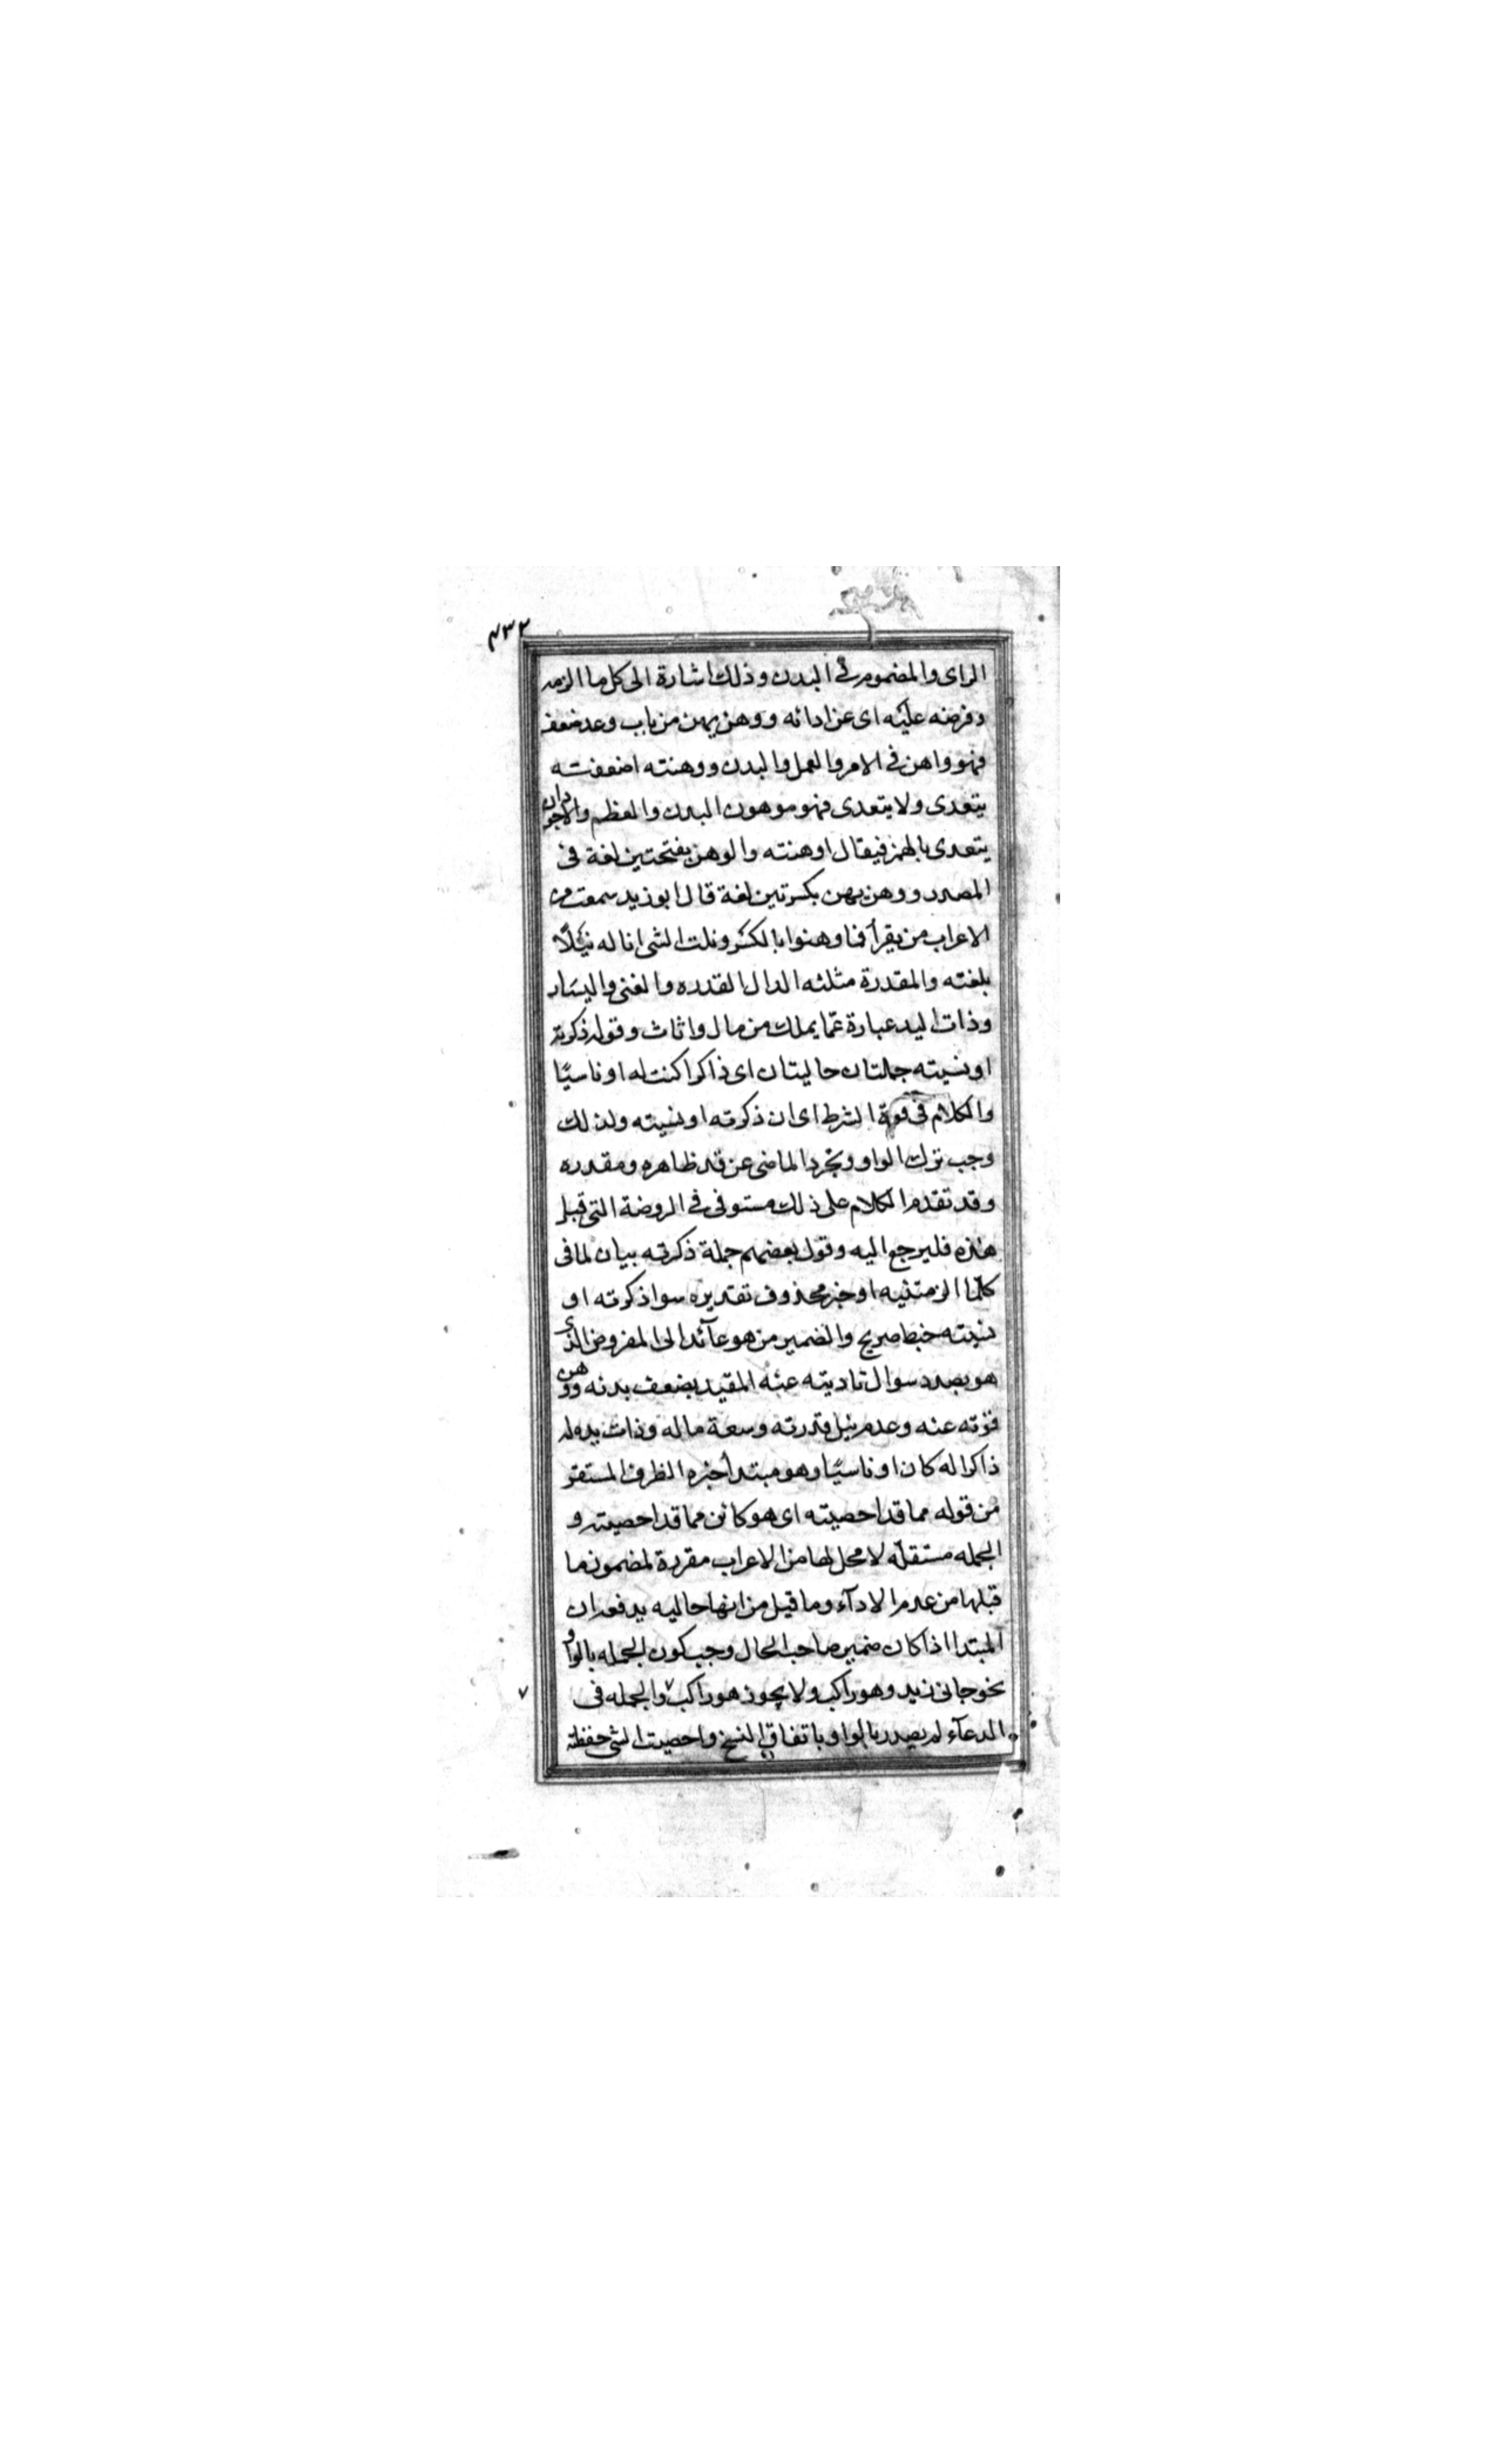 ٤٣٢
الراى والمضموم فى البدن وذلك اشارة الى كل ما الزمه
وفرضه عليه اى عن ادائه ووهن يهن من باب وعد ضعف
فهو واهن فى الامر والعمل والبدن ووهنته اضعفته
يتعدى ولا يتعدى فهو موهون البدن والعظم والاجود ان
يتعدى بالهمز فيقال اوهنته والوهن بفتحتين لغة فى
المصدر ووهن يهن بكسرتين لغة قال ابو زيد سمعت من
الاعراب من يقرأ فما وهنوا بالكسر ونلت الشى اناله نيلًا
بلغته والمقدرة مثلثه الدال القدره والغنى واليسار
وذات اليد عبارة عمّا يملك من مال واثاث وقوله ذكرته
او نسيته جملتان حاليتان اى ذاكرا كنت له او ناسيًا
والكلام فى قوة الشرط اى ان ذكرته او نسيته ولذلك
وجب ترك الواو وتجرد الماضى عن قد ظاهره ومقدره
وقد تقدم الكلام على ذلك مستوفى فى الروضة التى قبل
هذه فليرجع اليه وقول بعضهم جملة ذكرته بيان لما فى
كلما الزمتنيه او خبر محذوف تقديره سوا ذكرته او
نسيته خبط صريح والضمير من هو عآئد الى المفروض الذى
هو بصدد سوال تاديته عنه المقيد بضعف بدنه ووهن
قوته عنه وعدم نيل قدرته وسعة ماله وذات يده له
ذاكرا له كان او ناسيًا وهو مبتدأ خبره الظرف المستقر
من قوله مما قد احصيته اى هو كائن مما قد احصيته و
الجمله مستقلّه لا محل لها من الاعراب مقررة لمضمون ما
قبلها من عدم الادآء وما قيل من انها حاليه يدفعه ان
المبتدا اذا كان ضمير صاحب الحال وجب كون الجمله بالواو
نحو جانى زيد وهو راكب ولا يجوز هو راكب والجمله فى
الدعآء لم يصدر بالواو باتفاق النسخ واحصيت الشى حفظته